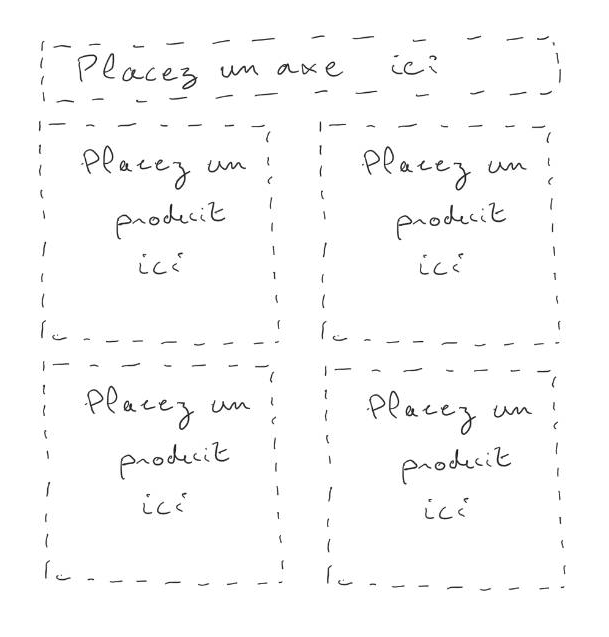 Placez un axe ici
Placez un
produit
ici
Placez un
produit
ici
Placez un
produit
ici
Placez un
produit
ici